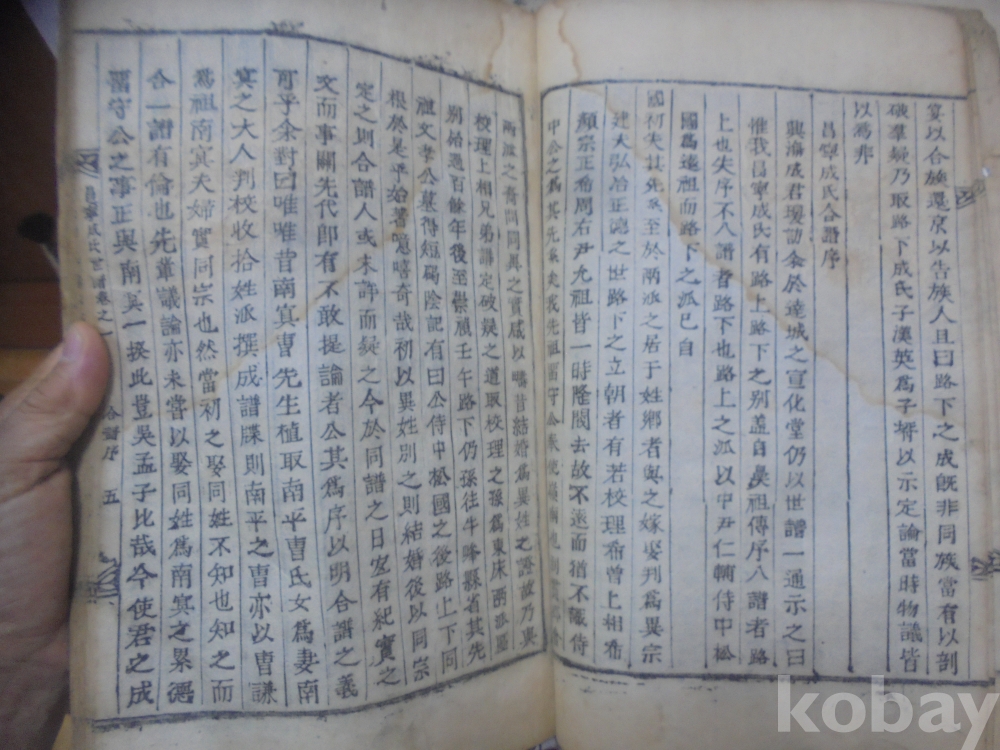 宴以合族還京以告族人且曰路下之成旣非同族當有以剖
破羣疑乃取路下成氏子漢英爲子壻以示定論當時物議皆
以爲非
昌寧成氏合譜序
興海成君璟訪余於達城之宣化堂仍以世譜一通示之曰
惟我昌寧成氏有路上路下之別盖自鼻祖傳序八譜者路
上也失序不入譜者路下也路上之派以中尹仁輔侍中松
國爲遠祖而路下之派已自
國初失其先系至於兩派之居于姓鄕者與之嫁娶判爲異宗
逮夫弘治正德之世路下之立朝者有若校理希曾上相希
顔宗正希周右尹允祖皆一時隆閥去故不遠而猶不識侍
中公之爲其先系矣我先祖留守公
兩派之旁問同異之實咸以疇昔結婚爲異姓之證故乃與
校理上相兄弟講定破疑之道取校理之孫爲東床兩派區
別始過百餘年後至崇禎壬午路下仍孫往牛峰縣省其先
祖文孝公墓得短碣陰記有曰公侍中松國之後路上下同
根於是乎始著噫嘻奇哉初以異姓別之則結婚後以同宗
定之則合譜人或未詳而疑之今於同譜之日宜有紀實之
文而事關先代卽有不敢提論者公其爲序以明合譜之義
可乎余對曰唯唯昔南冥曺先生植取南平曺氏女爲妻南
冥之大人判校收拾姓派撰成譜牒則南平之曺亦以曺謙
爲祖南冥夫婦實同宗也然當初之娶同姓不知也知之而
合一譜有倫也先輩議論亦未嘗以娶同姓爲南冥之累德
留守公之事正與南冥一揆此豈吳孟子比哉今使君之成
昌寧成氏合譜卷之一
合譜序 五
kobay